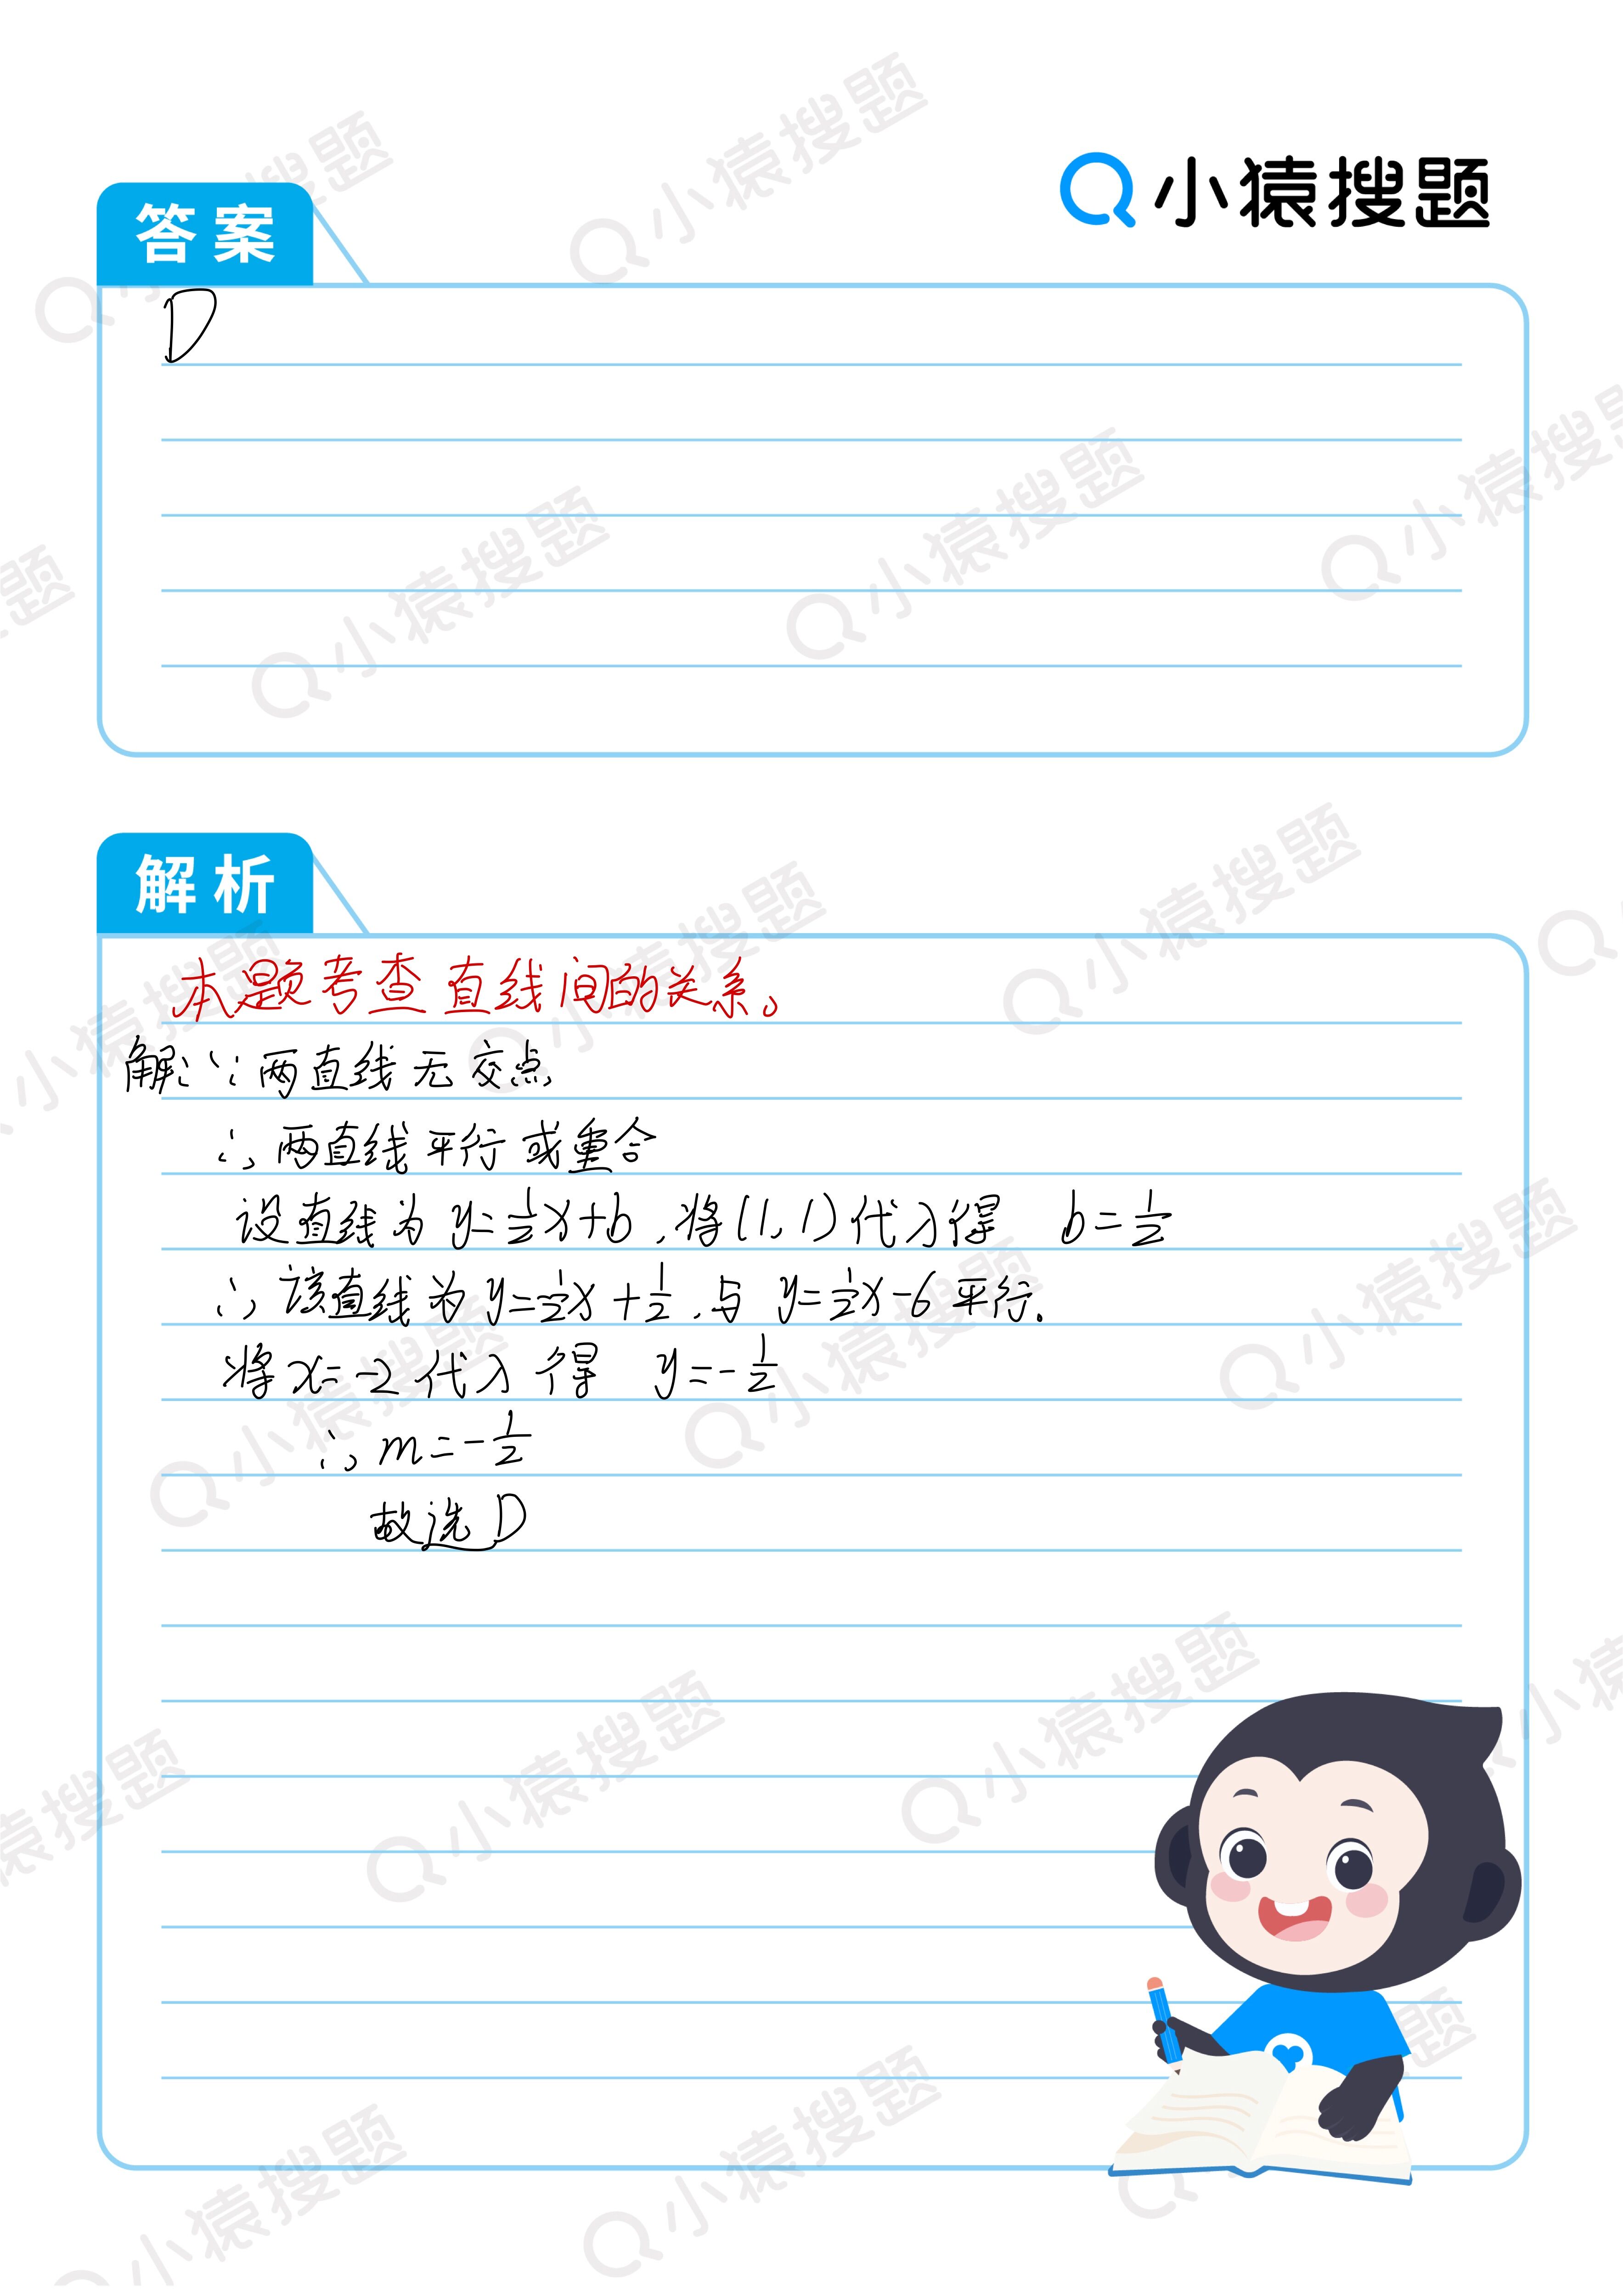 小猿搜题
答案
D
解析
本题考查直线间的关系。
解:∵两直线无交点
∴两直线平行或重合
设直线为 y=½x+b,将(1,1)代入得 b=½
∴该直线为y=½x+½,与 y=½x-6平行.
将x=-2代入得 y=-½
∴m=-½
故选D